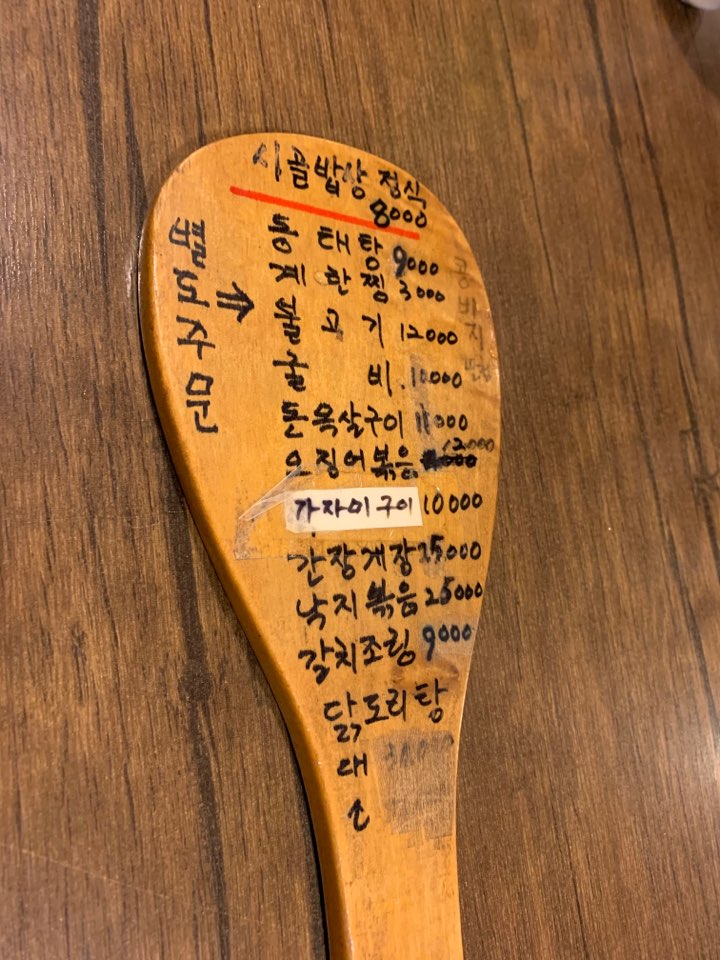 시골밥상 정식
8000
동태탕 9000
계란찜 3000
불고기 12000
굴비 10000
돈목살구이 11000
오징어볶음 12000
가자미구이 10000
간장게장 25000
낙지볶음 25000
갈치조림 9000
닭도리탕
대